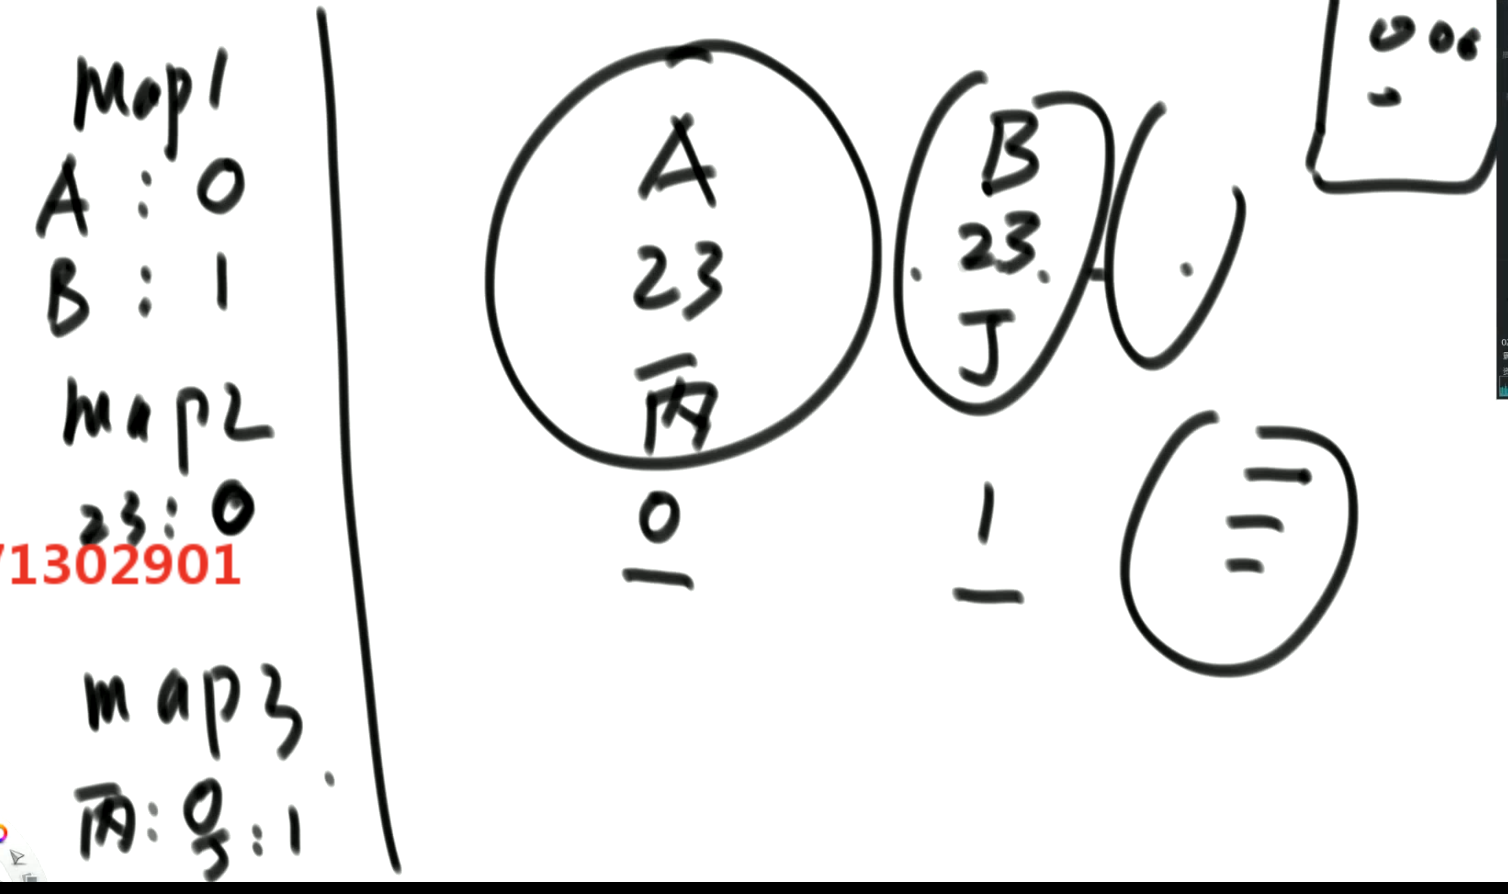 Map1
A : 0
B : 1
map2
23 : 0
71302901
map3
丙 : 0
J : 1
A
23
丙
0
B
23
J
1